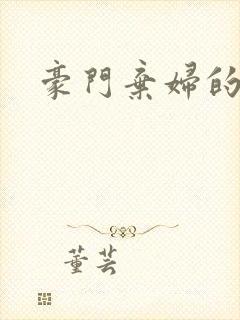 豪門棄婦的
董芸